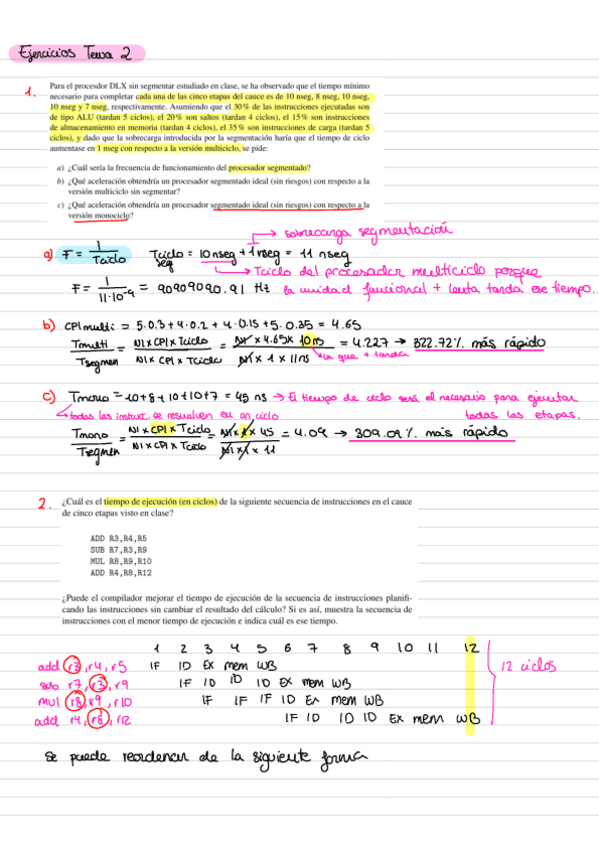 Ejercicios Tema 2
1. Para el procesador DLX sin segmentar estudiado en clase, se ha observado que el tiempo mínimo
necesario para completar cada una de las cinco etapas del cauce es de 10 nseg, 8 nseg, 10 nseg,
10 nseg y 7 nseg, respectivamente. Asumiendo que el 30% de las instrucciones ejecutadas son
de tipo ALU (tardan 5 ciclos), el 20% son saltos (tardan 4 ciclos), el 15% son instrucciones
de almacenamiento en memoria (tardan 4 ciclos), el 35% son instrucciones de carga (tardan 5
ciclos), y dado que la sobrecarga introducida por la segmentación haría que el tiempo de ciclo
aumentase en 1 nseg con respecto a la versión multiciclo, se pide:
a) ¿Cuál sería la frecuencia de funcionamiento del procesador segmentado?
b) ¿Qué aceleración obtendría un procesador segmentado ideal (sin riesgos) con respecto a la
versión multiciclo sin segmentar?
c) ¿Qué aceleración obtendría un procesador segmentado ideal (sin riesgos) con respecto a la
versión monociclo?
→ sobrecarga segmentación
a) F = 1 / Tciclo Tciclo seg = 10nseg + 1nseg = 11 nseg
→ Tciclo del procesador multiciclo porque
F = 1 / 11·10⁻⁹ = 90909090.91 Hz la unidad funcional + lenta tarda ese tiempo.
b) CPI multi = 5·0.3 + 4·0.2 + 4·0.15 + 5·0.35 = 4.65
Tmulti / Tsegmen = NI x CPI x Tciclo / NI x CPI x Tciclo = NI x 4.65 x 10ns / NI x 1 x 11ns = 4.227 → 322.72% más rápido
→ la que + tarda
c) Tmono = 10+8+10+10+7 = 45 ns → El tiempo de ciclo será el necesario para ejecutar
→ todas las instrucc. se resuelven en un ciclo todas las etapas.
Tmono / Tsegmen = NI x CPI x Tciclo / NI x CPI x Tciclo = NI x 1 x 45 / NI x 1 x 11 = 4.09 → 309.09% más rápido
2. ¿Cuál es el tiempo de ejecución (en ciclos) de la siguiente secuencia de instrucciones en el cauce
de cinco etapas visto en clase?
ADD R3,R4,R5
SUB R7,R3,R9
MUL R8,R9,R10
ADD R4,R8,R12
¿Puede el compilador mejorar el tiempo de ejecución de la secuencia de instrucciones planifi-
cando las instrucciones sin cambiar el resultado del cálculo? Si es así, muestra la secuencia de
instrucciones con el menor tiempo de ejecución e indica cuál es ese tiempo.
1 2 3 4 5 6 7 8 9 10 11 12
add r3, r4, r5 IF ID EX mem WB
sub r7, r3, r9 IF ID ID ID EX mem WB
mul r8, r9, r10 IF IF IF ID EX mem WB
add r4, r8, r12 IF ID ID ID EX mem WB
12 ciclos
Se puede reordenar de la siguiente forma